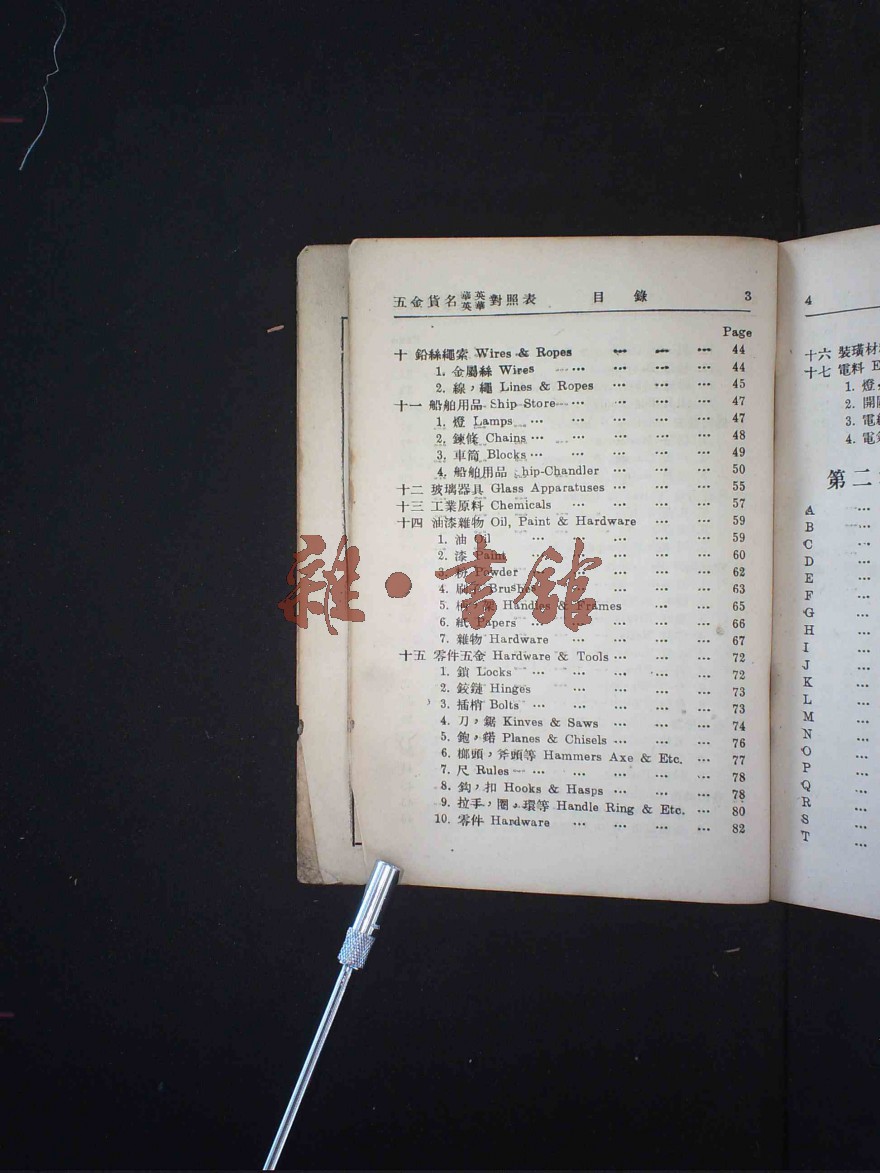 五金貨名華英英華對照表 目錄 3
Page
十 鉛絲繩索 Wires & Ropes ... ... ... 44
1. 金屬絲 Wires ... ... ... ... 44
2. 線，繩 Lines & Ropes ... ... ... 45
十一 船舶用品 Ship Store ... ... ... ... 47
1. 燈 Lamps ... ... ... ... ... 47
2. 鍊條 Chains ... ... ... ... 48
3. 車筒 Blocks ... ... ... ... 49
4. 船舶用品 hip-Chandler ... ... ... 50
十二 玻璃器具 Glass Apparatuses ... ... ... 55
十三 工業原料 Chemicals ... ... ... ... 57
十四 油漆雜物 Oil, Paint & Hardware ... ... 59
1. 油 Oil ... ... ... ... ... 59
2. 漆 Paint ... ... ... ... 60
3. 粉 Powder ... ... ... ... 62
4. 刷子 Brushes ... ... ... ... 63
5. Handles & Frames ... ... 65
6. 紙 Papers ... ... ... ... 66
7. 雜物 Hardware ... ... ... ... 67
十五 零件五金 Hardware & Tools ... ... ... 72
1. 鎖 Locks ... ... ... ... ... 72
2. 鉸鏈 Hinges ... ... ... ... 73
3. 插梢 Bolts ... ... ... ... 73
4. 刀，鋸 Kinves & Saws ... ... ... 74
5. 鉋，鍩 Planes & Chisels ... ... ... 76
6. 榔頭，斧頭等 Hammers Axe & Etc. ... 77
7. 尺 Rules ... ... ... ... ... 78
8. 鈎，扣 Hooks & Hasps ... ... ... 78
9. 拉手，圈，環等 Handle Ring & Etc. ... 80
10. 零件 Hardware ... ... ... ... 82
4
十六 裝璜材
十七 電料 E
1. 燈
2. 開
3. 電
4. 電
第二
A ...
B ...
C ...
D ...
E ...
F ...
G ...
H ...
I ...
J ...
K ...
L ...
M ...
N ...
O ...
P ...
Q ...
R ...
S ...
T ...
雜·書館